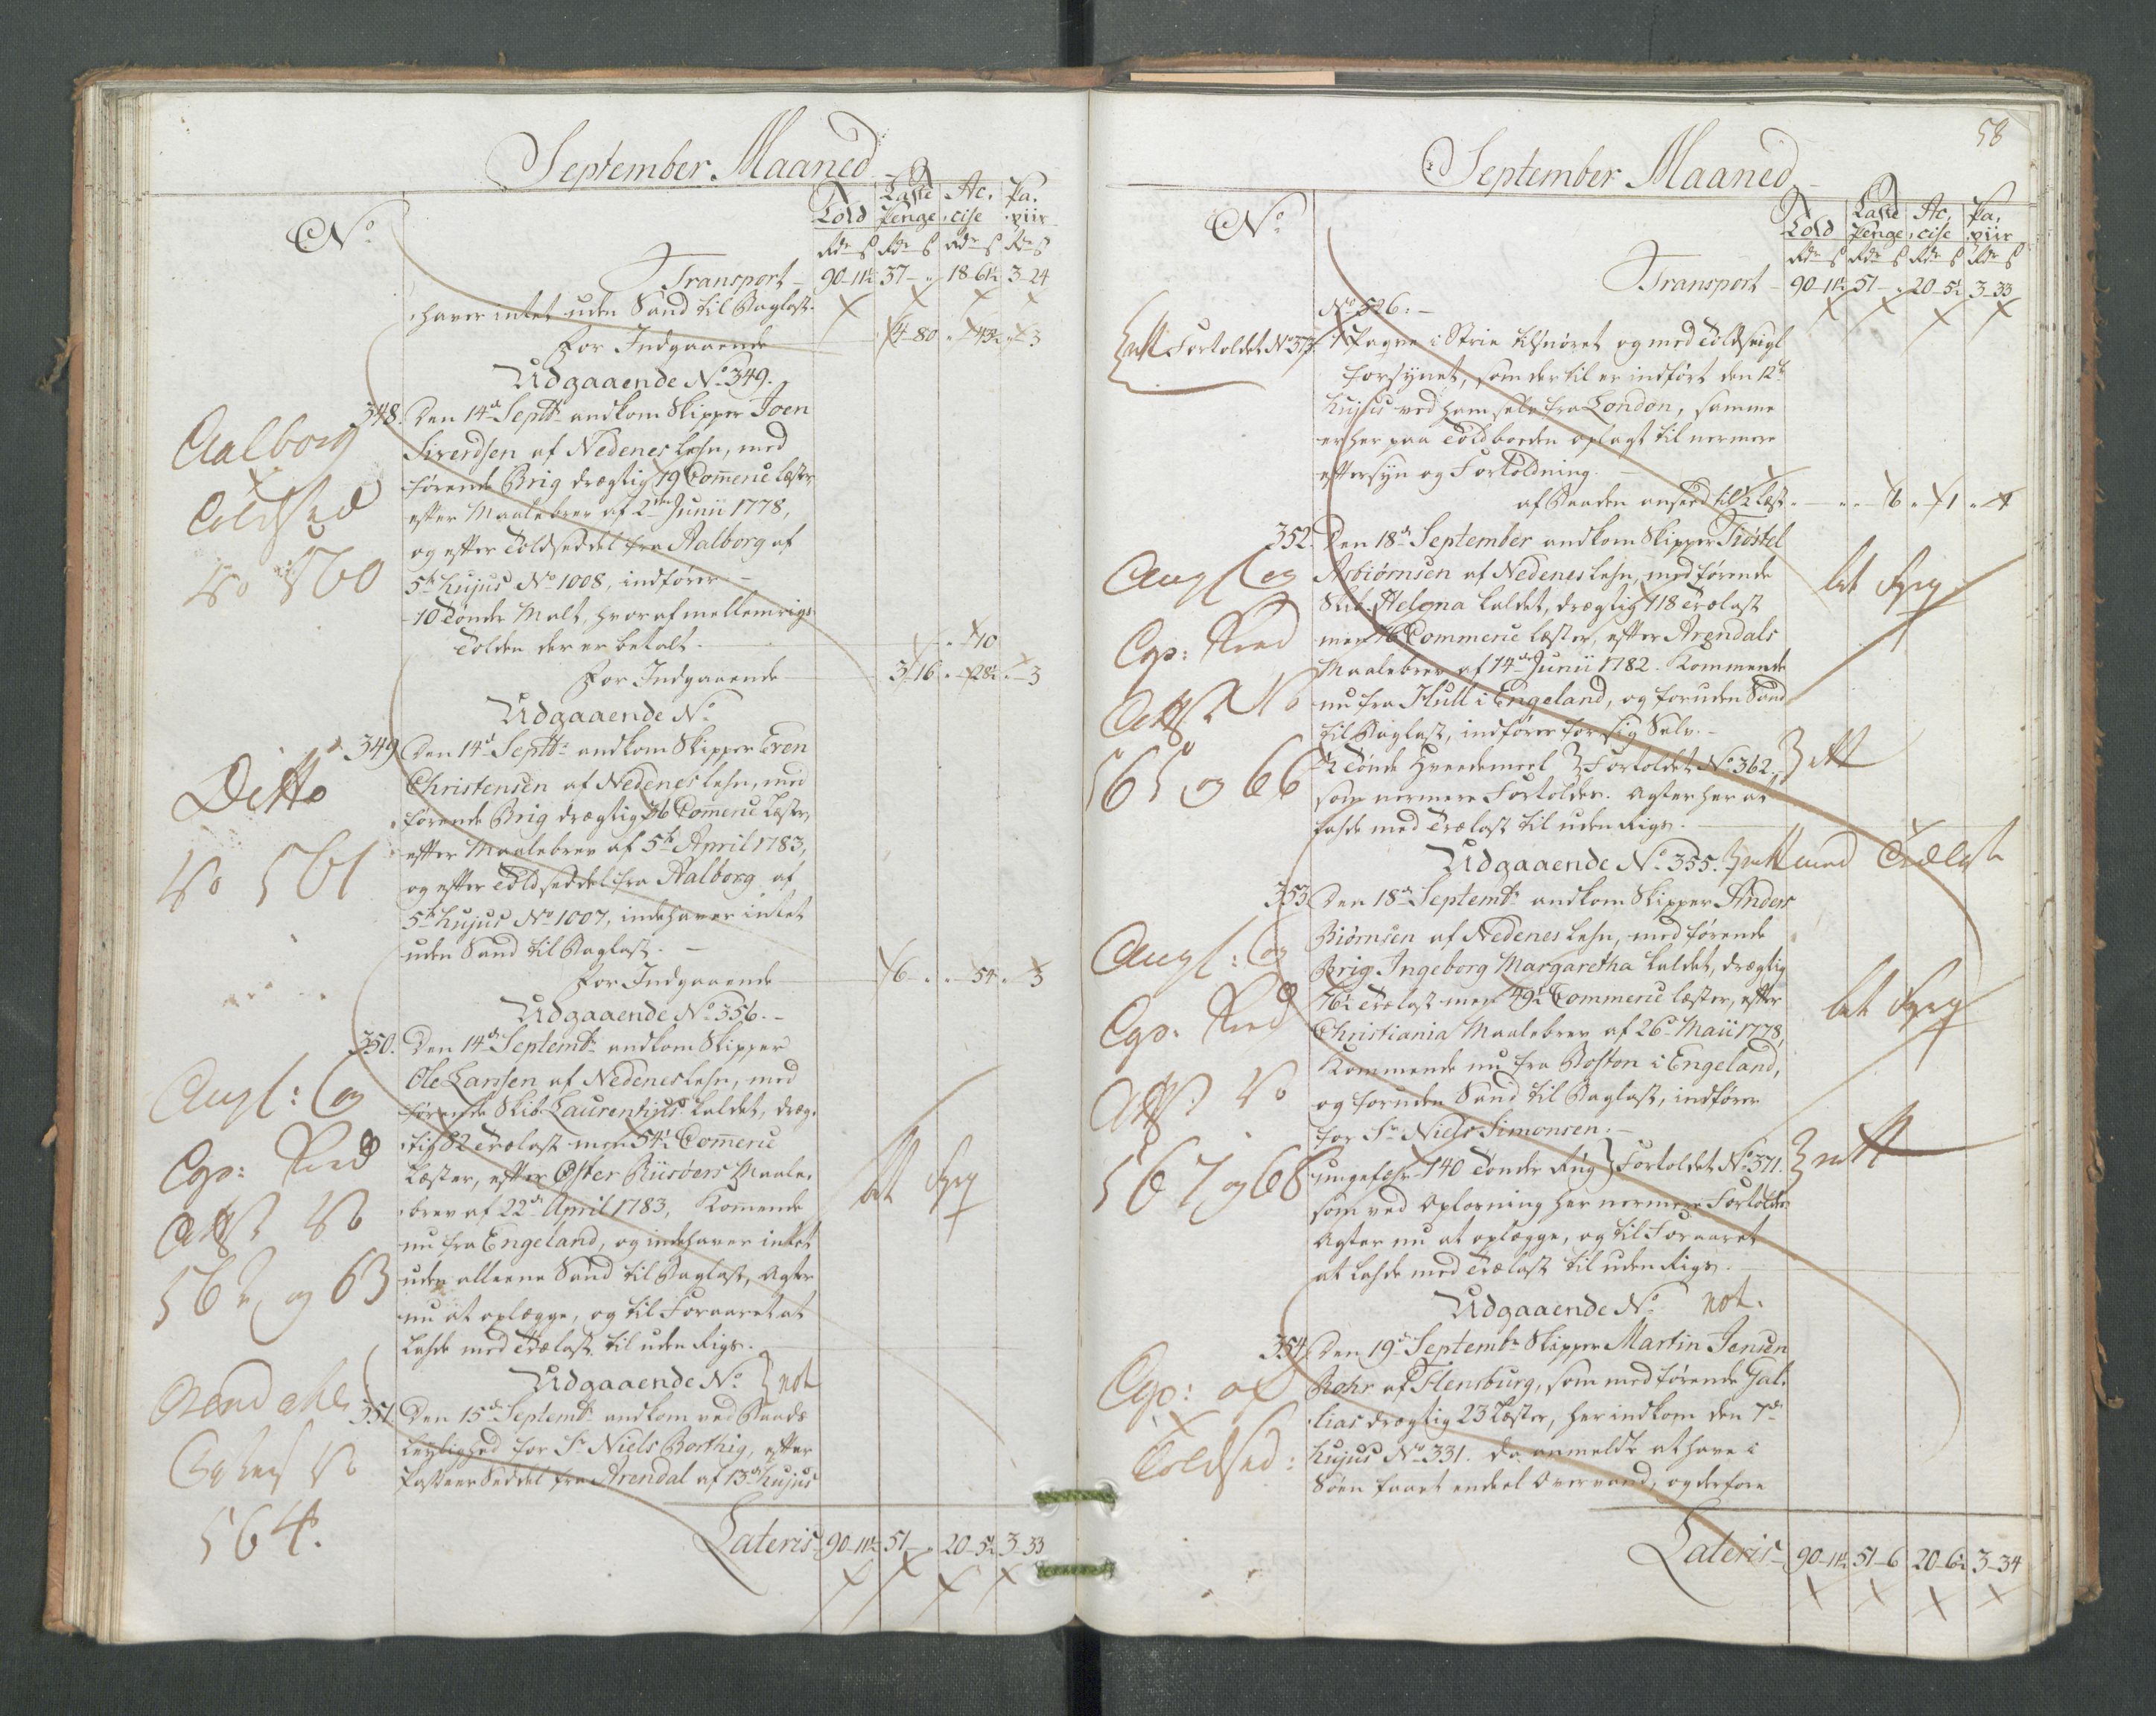 September Maaned
No
Told Laste Penge Ac, cise Pa, piir
Rdr ß Rdr ß Rdr ß Rdr ß
Transport 90-11½ 37-" 18-61½ 3-24
haver intet uden Sand til Baglast.
For Indgaaende 14-80 "-43½ "-3
Udgaaende No 349.
348. Den 14de Septbr ankom Skipper Joen
Siverdsen af Nedenes Lehn, med
førende Brig drægtig 19 Commerce læster
efter Maalebrev af 2den Junii 1778,
og efter Toldseddel fra Aalborg af
5te hujus No 1008, indfører
10 Tønder Malt, hvoraf mellemrigs
Tolden der er betalt. "-10
For Indgaaende 3-16 "-28½ "-3
Aalborg
Toldsed
No 560
Udgaaende No
349 Den 14de Septbr ankom Skipper Even
Christensen af Nedenes Lehn, med
førende Brig drægtig 36 Commerce Læster,
efter Maalebrev af 5te April 1783,
og efter Toldseddel fra Aalborg af
5te hujus No 1007, indehaver intet
uden Sand til Baglast.
For Indgaaende 6 " "-54 "-3
Ditto
No 561
Udgaaende No 356.
350. Den 14de Septembr ankom Skipper
Ole Larssen af Nedenes Lehn, med
førende Skib Laurentius kaldet, dræg,
tig 82 Trælast men 54½ Commerce
Læster, efter Øster Riisøers Maale,
brev af 22de April 1783, Kommende
nu fra Engeland, og indehaver intet
uden alleene Sand til Baglast, Agter
nu at oplægge, og til Foraaret at
Lahde med Trælast til uden Rigs.
Angl: og
Cop:
Attst No
562 og 63
Udgaaende No not
351. Den 15de Septembr ankom ved Baads
Leylighed for Sr Niels Borthig, efter
Passeer Seddel fra Arendal af 13de hujus
Arendahls
No
564.
Lateris 90-11½ 51-" 20-5½ 3-33
58
September Maaned
No
Told Laste Penge Ac, cise Pa, piir
Rdr ß Rdr ß Rdr ß Rdr ß
Transport 90-11½ 51-" 20-5½ 3-33
No 526:
Fortoldet No 373. 1 Pagve i Strie tilsnøret og med Toldseigl
forsynet, som der til er indført den 12te
hujus ved ham selv fra London, samme
er her paa Toldboeden oplagt til nermere
eftersyn og Fortoldning.
af Baaden anseed til ½ Læst "-6 "-1 "-1
352. Den 18de September ankom Skipper Tiøstel
Asbiørnsen af Nedenes Lehn, medførende
Skib Helena kaldet, drægtig 118 Trælast
men 76 Commerce læster, efter Arendals
Maalebrev af 14de Junii 1782. Kommende
nu fra Hull i Engeland, og foruden Sand
til Baglast, indfører for sig Selv.
½ Tønde Hvedemeel Fortoldet No 362.
som nermere Fortoldes. Agter her at
lahde med Trælast til uden Rigs.
Angl og
Cop:
Attst No
565 og 66
Udgaaende No 355. med Trælast
353 Den 18de Septembr ankom Skipper Anders
Biørnsen af Nedenes Lehn, medførende
Brig Ingeborg Margaretha kaldet, drægtig
76½ Trælast men 49½ Commerce læster, efter
Christiania Maalebrev af 26de Maii 1778,
Kommende nu fra Boston i Engeland,
og foruden Sand til Baglast, indfører
for Sr Niels Simonsen:
ungefehr 140 Tønder Rug Fortoldet No 371.
som ved Oplosning her nermere Fortoldes
Agter nu at oplægge, og til Foraaret
at Lahde med Trælast til uden Rigs.
Angl: og
Cop:
Attst No
567 og 68
Udgaaende No not.
354. Den 19de Septembr Skipper Martin Jensen
Rohr af Flensburg, som medførende Gal,
lias drægtig 23 Læster, her indkom den 7de
hujus No 331. da anmeldte at have i
Søen faaet endeel Overvand, og derfore
Cop: af
Toldsed:
Lateris 90-11½ 51-6 20-6½ 3-34